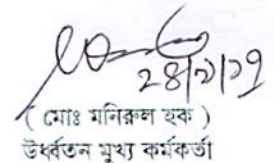 ২৪/১/১৭
( মোঃ মনিরুল হক )
উর্ধ্বতন মুখ্য কর্মকর্তা